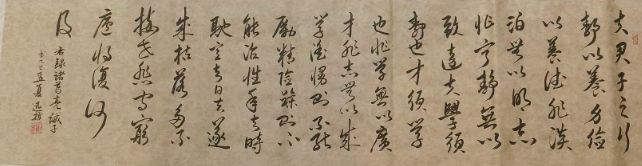 夫君子之行
靜以養身儉
以養德非淡
泊無以明志
非寧靜無以
致遠夫學須
靜也才須學
也非學無以廣
才非志無以成
學淫慢則不能
勵精險躁則不
能治性年與時
馳意與日去遂
成枯落多不
接世悲守窮
廬將復何
及
右錄諸葛亮誡子
書